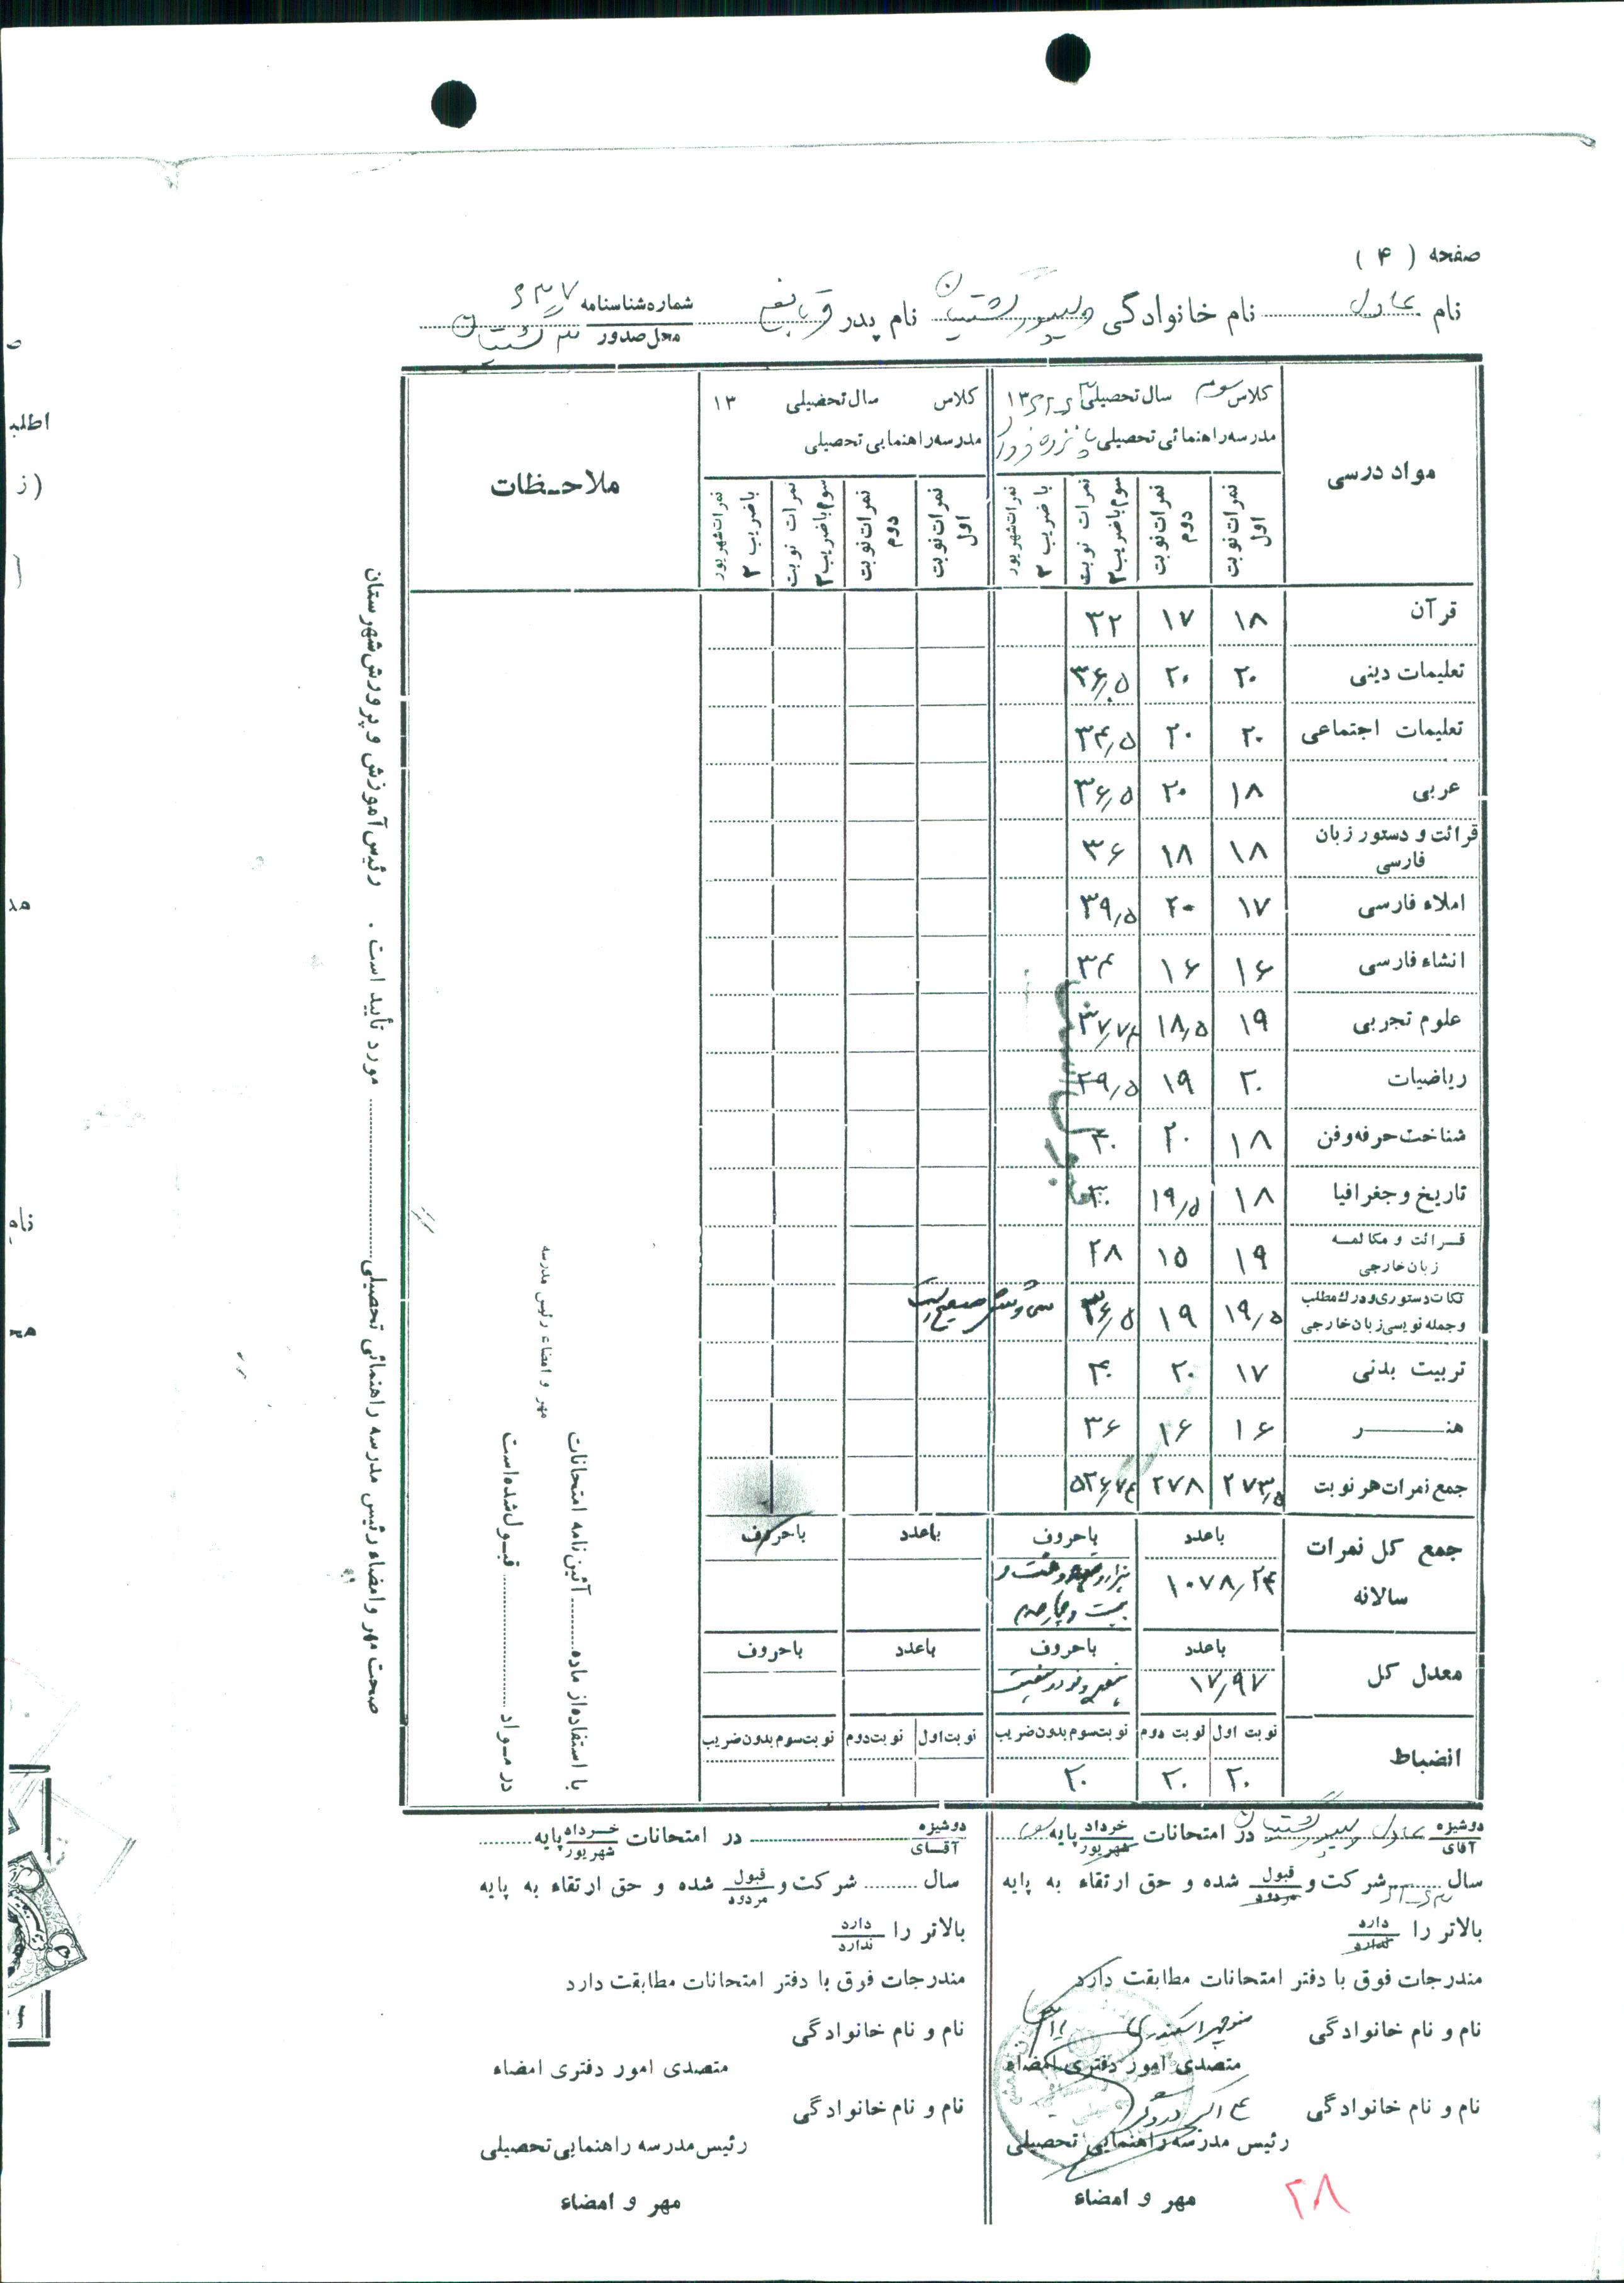 صفحه ( ۴ )
نام عادل نام خانوادگی ولیپور گشتیان نام پدر شماره شناسنامه ۶۳۷
محل صدور گشتیان
مواد درسی
کلاس سوم سال تحصیلی ۱۳
مدرسه راهنمائی تحصیلی پانزده خرداد
نمرات نوبت اول
نمرات نوبت دوم
نمرات نوبت سوم با ضریب ۲
نمرات شهریور با ضریب ۲
کلاس سال تحصیلی ۱۳
مدرسه راهنمایی تحصیلی
نمرات نوبت اول
نمرات نوبت دوم
نمرات نوبت سوم با ضریب ۲
نمرات شهریور با ضریب ۲
ملاحـظات
قرآن ۱۸ ۱۷ ۳۲
تعلیمات دینی ۲۰ ۲۰ ۳۶٫۵
تعلیمات اجتماعی ۲۰ ۲۰ ۳۴٫۵
عربی ۱۸ ۲۰ ۳۶٫۵
قرائت و دستور زبان فارسی ۱۸ ۱۸ ۳۶
املاء فارسی ۱۷ ۲۰ ۳۹٫۵
انشاء فارسی ۱۶ ۱۶ ۳۴
علوم تجربی ۱۹ ۱۸٫۵ ۳۷٫۷۴
ریاضیات ۲۰ ۱۹ ۳۹٫۵
شناخت حرفه و فن ۱۸ ۲۰ ۴۰
تاریخ و جغرافیا ۱۸ ۱۹٫۵
قرائت و مکالمه زبان خارجی ۱۹ ۱۵ ۲۸
نکات دستوری و درک مطلب و جمله نویسی زبان خارجی ۱۹٫۵ ۱۹ ۳۶٫۵ سی و شش صحیح است
تربیت بدنی ۱۷ ۲۰ ۴۰
هنر ۱۶ ۱۶ ۳۶
جمع نمرات هر نوبت ۲۷۳٫۵ ۲۷۸ ۵۲۶٫۷۴
جمع کل نمرات سالانه
باعدد باحروف باعدد باحروف
۱۰۷۸٫۲۴ هزار و هفتاد و هشت و بیست و چهار صدم
معدل کل
باعدد باحروف باعدد باحروف
۱۷٫۹۷ هفده و نود و هفت
انضباط
نوبت اول نوبت دوم نوبت سوم بدون ضریب نوبت اول نوبت دوم نوبت سوم بدون ضریب
۲۰ ۲۰ ۲۰
با استفاده از ماده آئین نامه امتحانات
در مـواد قبـول شده است
مهر و امضاء رئیس مدرسه
صحت مهر و امضاء رئیس مدرسه راهنمائی تحصیلی مورد تأیید است . رئیس آموزش و پرورش شهرستان
دوشیزه آقای عادل ولیپور گشتیان در امتحانات خرداد شهریور پایه
سال شرکت و قبول مردود شده و حق ارتقاء به پایه
بالاتر را دارد ندارد
مندرجات فوق با دفتر امتحانات مطابقت دارد
نام و نام خانوادگی منوچهر اسکندری
متصدی امور دفتری امضاء
نام و نام خانوادگی
رئیس مدرسه راهنمایی تحصیلی
مهر و امضاء
۲۸
دوشیزه آقـای در امتحانات خـرداد شهریور پایه
سال شرکت و قبول مردود شده و حق ارتقاء به پایه
بالاتر را دارد ندارد
مندرجات فوق با دفتر امتحانات مطابقت دارد
نام و نام خانوادگی
متصدی امور دفتری امضاء
نام و نام خانوادگی
رئیس مدرسه راهنمایی تحصیلی
مهر و امضاء